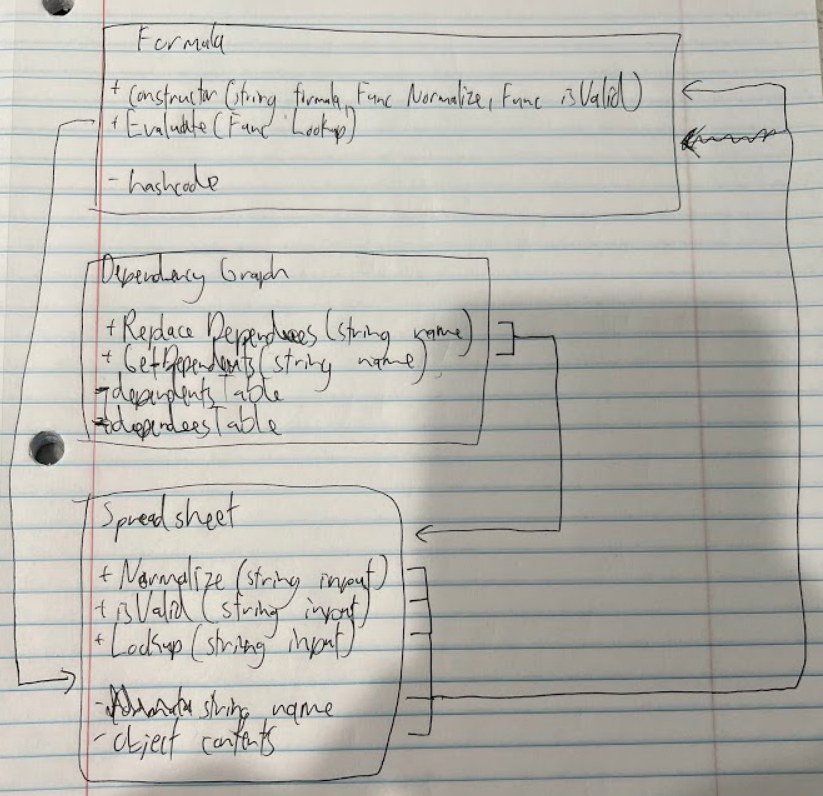 Formula
+ Constructor (string formula, Func Normalize, Func isValid)
+ Evaluate (Func Lookup)
- hashcode
Dependency Graph
+ Replace Dependees (string name)
+ GetDependents (string name)
- dependentsTable
- dependeesTable
Spreadsheet
+ Normalize (string input)
+ isValid (string input)
+ Lookup (string input)
- string name
- object contents